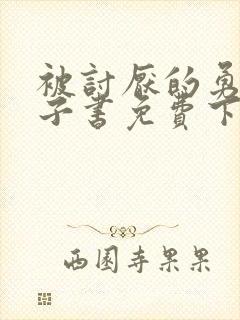 被討厭的勇
子書免費下
西園寺果果